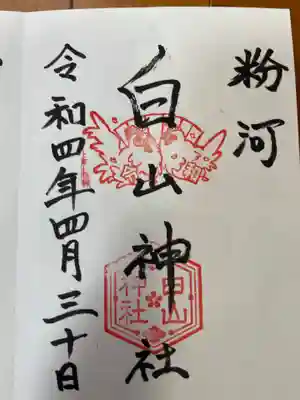 粉河
白山神社
令和四年四月三十日
白山
神社